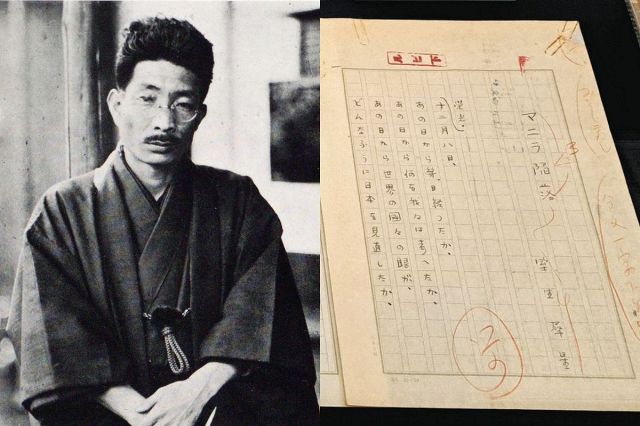 マニラ陥落
室生犀星
十二月八日、
あの日から幾日経つたか。
あの日から何を我々は考へたか。
あの日から世界の國々の眼が、
どんなふうに日本を見直したか。